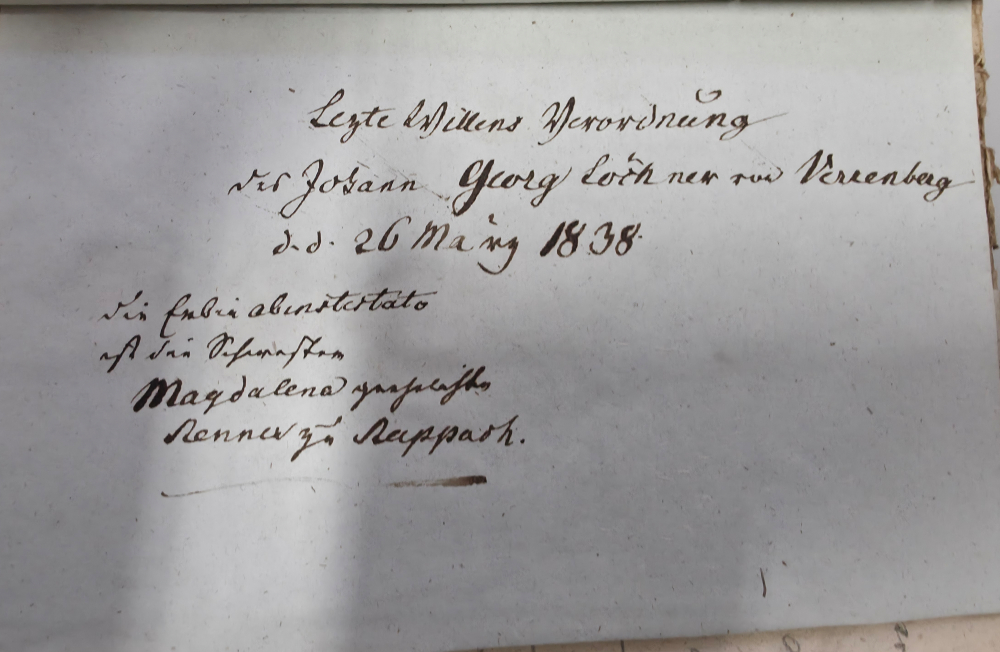 Lezte Willens Verordnung
des Johann Georg Löchner von Verrenberg
d. d. 26 März 1838.
die Erbin abintestato
ist die Schwester
Magdalena geehelichte
Renner zu Rappach.